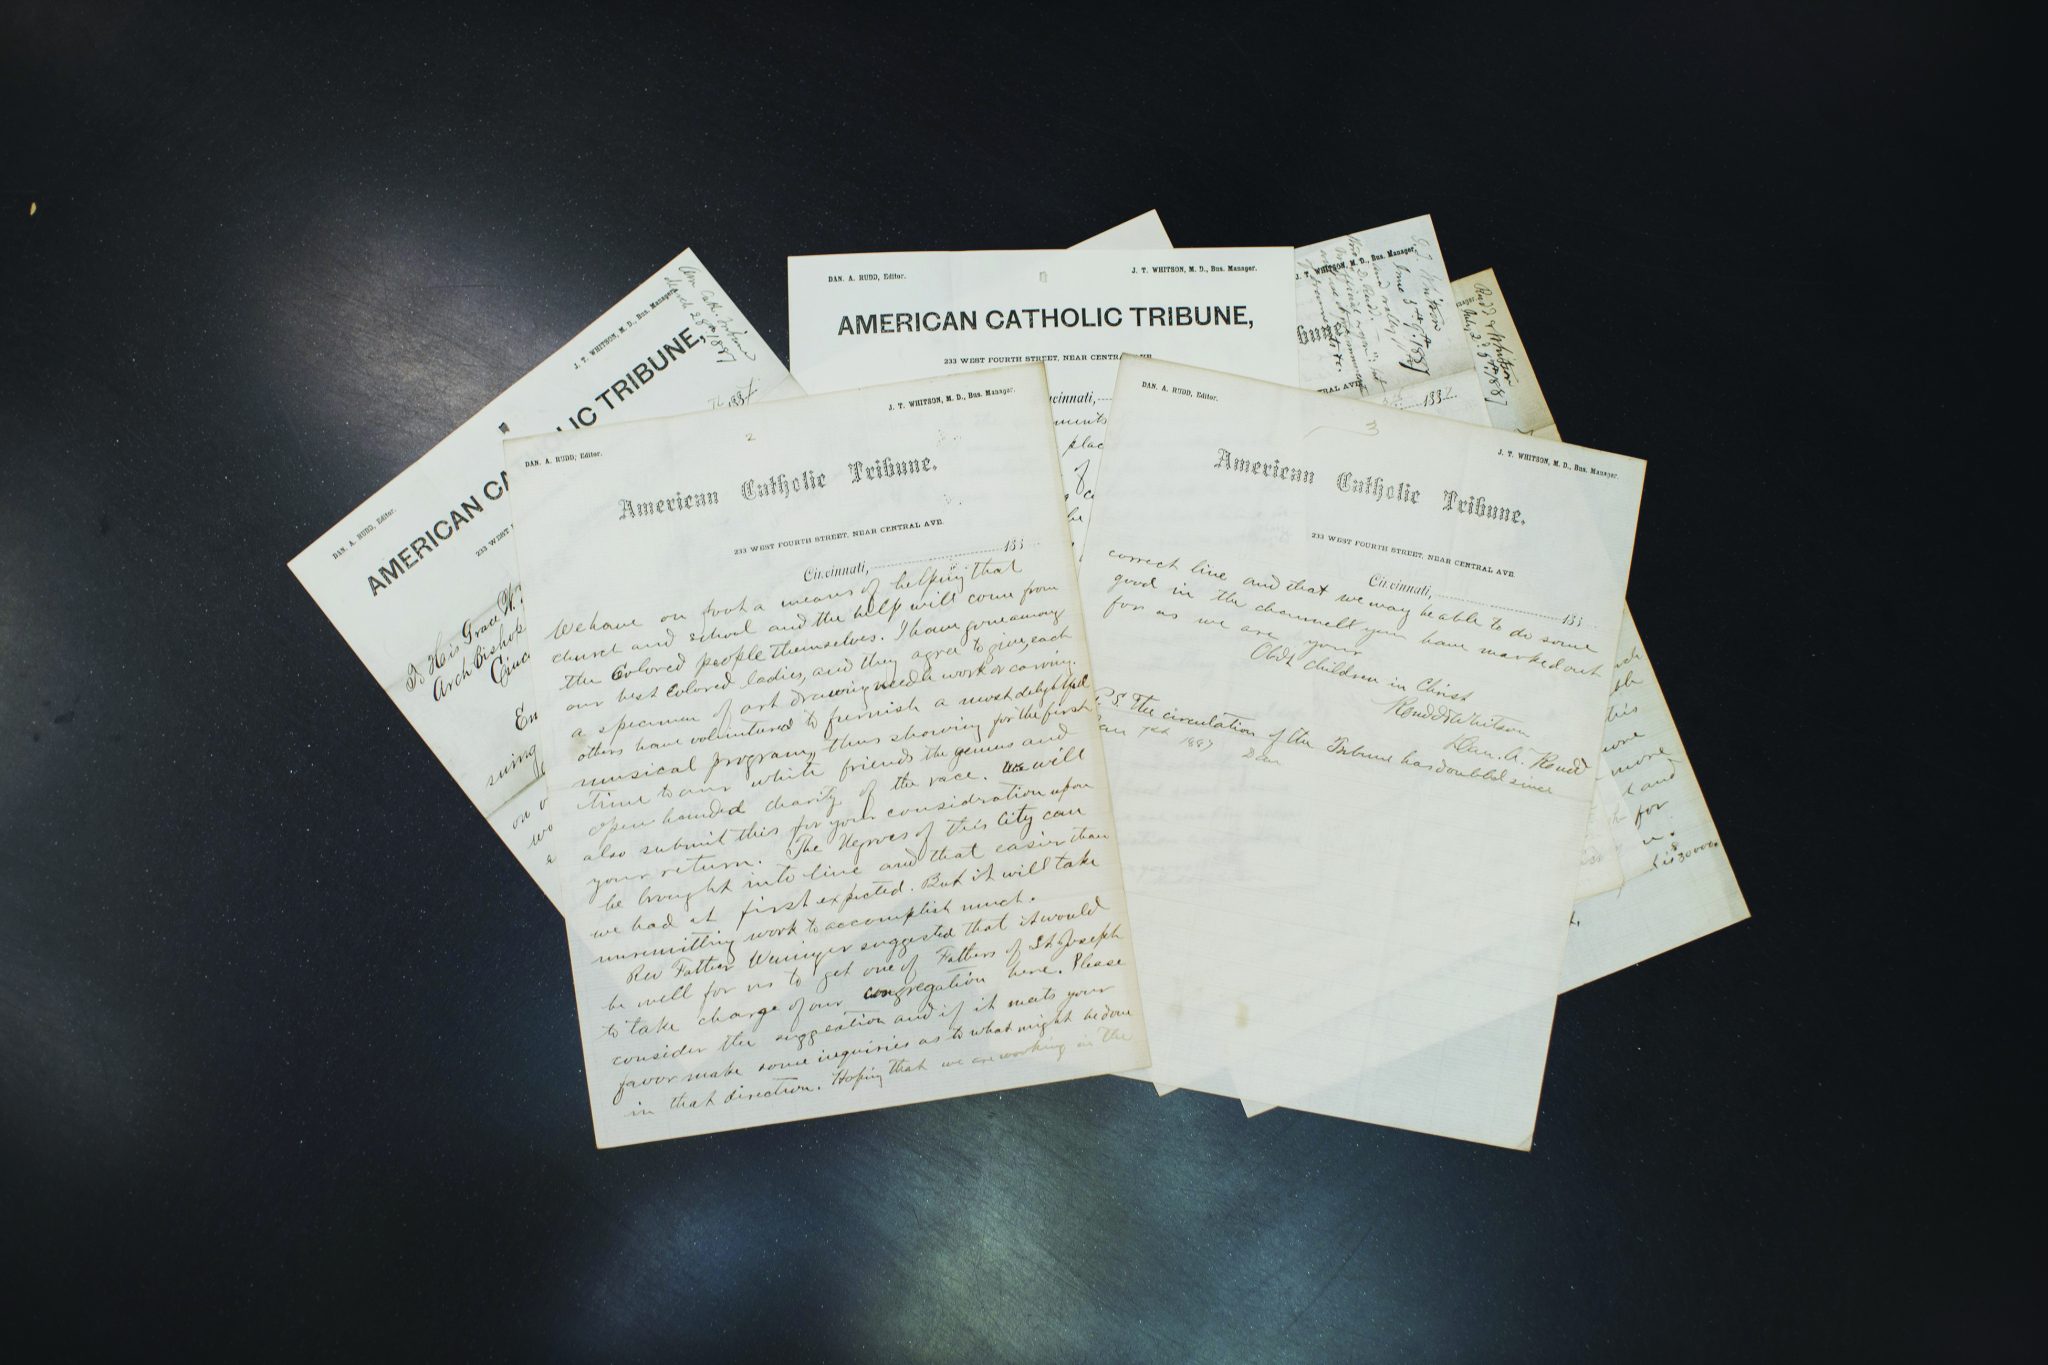 DAN. A. RUDD, Editor.
J. T. WHITSON, M. D., Bus. Manager.
Am. Cath. Tribune
March 28th 1887
AMERICAN CA
LIC TRIBUNE,
233 WEST
To His Grace
Arch Bishop
DAN. A. RUDD, Editor.
J. T. WHITSON, M. D., Bus. Manager.
AMERICAN CATHOLIC TRIBUNE,
233 WEST FOURTH STREET, NEAR CENTRAL AVE
cinnati,
ments
plac
of
J. T. WHITSON, M. D., Bus. Manager.
bune
TRAL AVE.
1887
2
DAN. A. RUDD, Editor.
J. T. WHITSON, M. D., Bus. Manager.
American Catholic Tribune.
233 WEST FOURTH STREET, NEAR CENTRAL AVE.
Cincinnati, 188
We have on foot a means of helping that
church and school and the help will come from
the Colored people themselves. I have gone among
our best Colored ladies, and they agree to give, each
a specimen of art drawing needle work or carving.
others have voluntured to furnish a most delightful
musical program, thus showing for the first
time to our white friends the genius and
open handed charity of the race. We will
also submit this for your consideration upon
your return. The Negroes of this City can
be brought into line and that easier than
we had at first expected. But it will take
unremitting work to accomplish much.
Rev Father Weninger suggested that it would
be well for us to get one of Fathers of St Joseph
to take charge of our congregation here. Please
consider the suggestion and if it meets your
favor make some inquiries as to what might be done
in that direction. Hoping that we are working in the
3
DAN. A. RUDD, Editor.
J. T. WHITSON, M. D., Bus. Manager
American Catholic Tribune.
233 WEST FOURTH STREET, NEAR CENTRAL AVE.
Cincinnati, 188
correct line and that we may be able to do some
good in the channell you have marked out
for us we are your
Obdt children in Christ
Rudd & Whitson
Dan. A. Rudd
P.S. The circulation of the Tribune has doubled since
1887
Dan
more
and
for